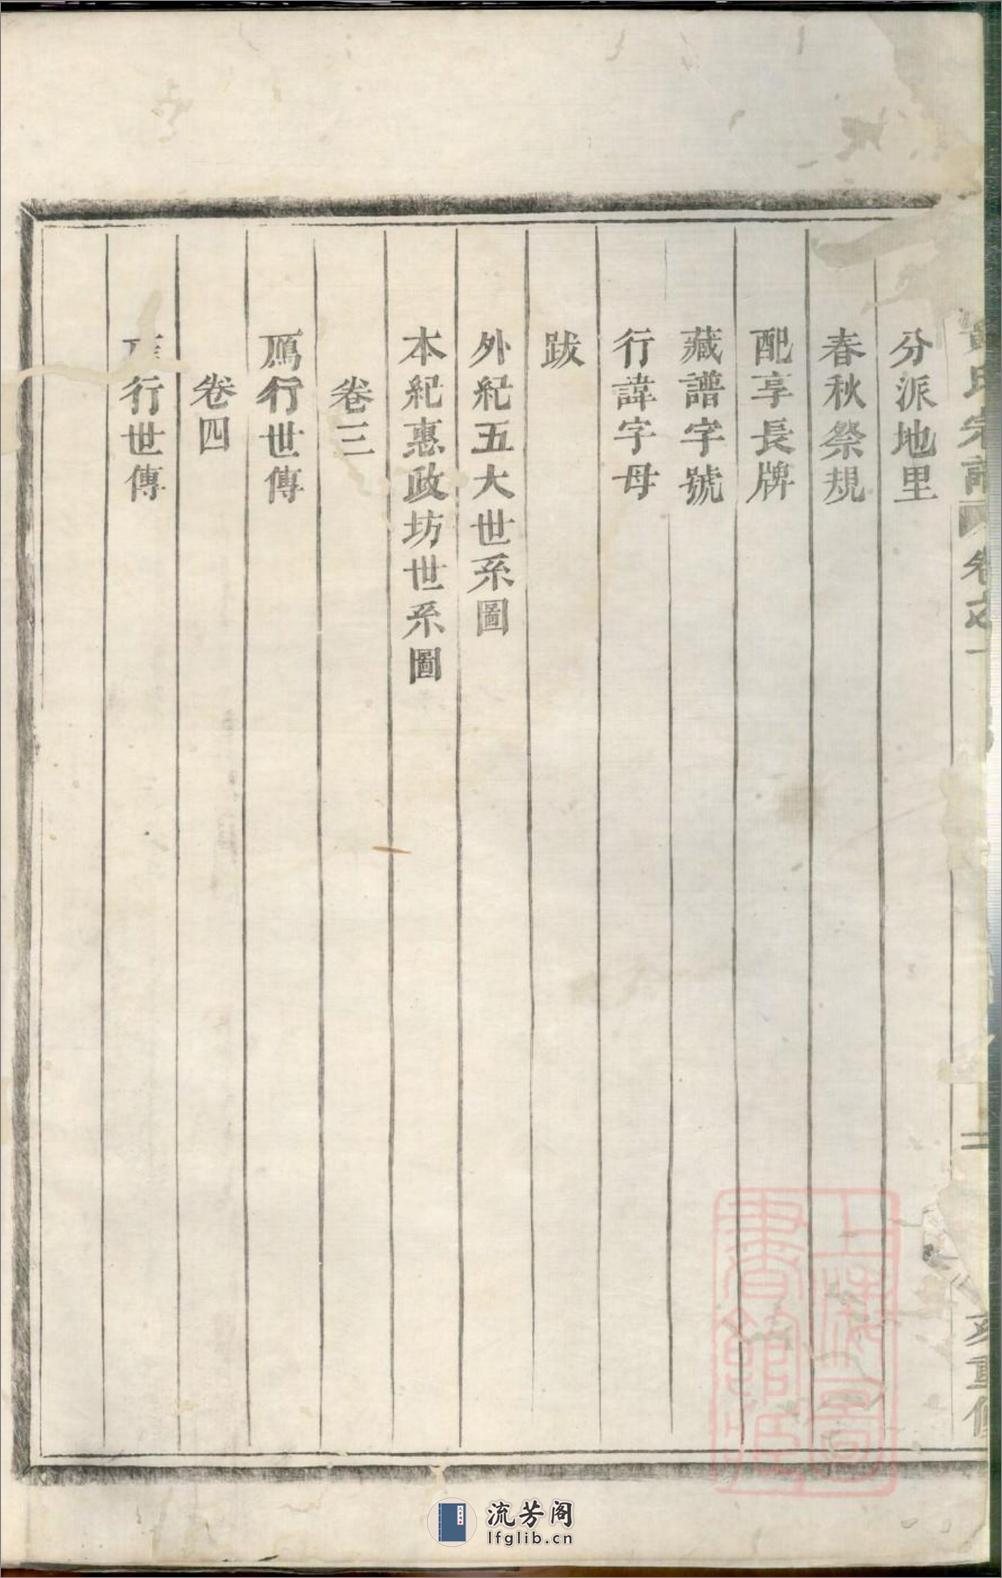 分派地里
春秋祭規
配享長牌
藏譜字號
行諱字母
跋
外紀五大世系圖
本紀惠政坊世系圖
卷三
鴈行世傳
卷四
行世傳
氏宗譜
卷之一
二
亥重修
上海圖書館藏
流芳阁
lfglib.cn